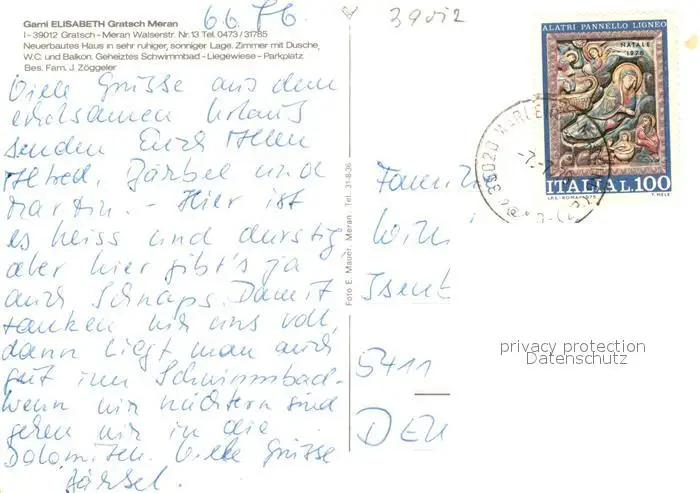 Garni ELISABETH Gratsch Meran
I-39012 Gratsch - Meran Walserstr. Nr. 13 Tel. 0473/31785
Neuerbautes Haus in sehr ruhiger, sonniger Lage. Zimmer mit Dusche,
W.C. und Balkon. Geheiztes Schwimmbad - Liegewiese - Parkplatz
Bes. Fam. J. Zöggeler
6.6.76.
Viele Grüsse aus dem
erholsamen Urlaub
senden Euch Allen
Alfred, Bärbel und
Martin. - Hier ist
es heiss und durstig,
aber hier gibt's ja
auch Schnaps. Damit
tanken wir uns voll,
dann liegt man auch
gut im Schwimmbad-
wenn wir nüchtern sind
gehen wir in die
Dolomiten. Viele Grüsse
Bärbel.
Foto E. Mauer, Meran Tel. 31-8-36
39012
ALATRI PANNELLO LIGNEO
NATALE
1975
ITALIA L.100
I.P.S.-ROMA-1975 T. MELE
39020
Isenb
5411
DEU
privacy protection
Datenschutz